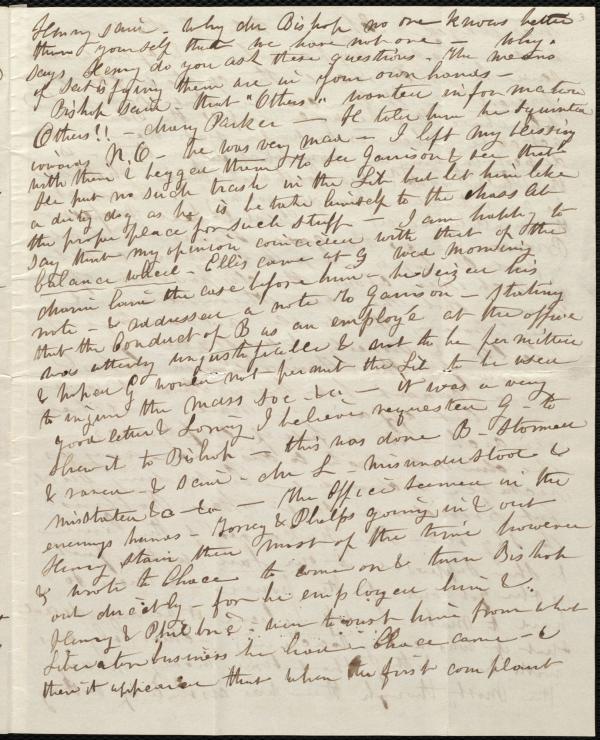 Henry said - why Mr Bishop no one knows better
than yourself that we have not one - why,
says Henry do you ask these questions. The means
of satisfying them are in your own hands -
Bishop said - that "Others" wanted information
Others!! - Mary Parker - He told her he squinted
towards N.O - he was very mad - I left my blessing
with them & begged them to see Garrison & see that
He put no such trash in the Lib but let him like
a dirty dog as he is betake himself to the Mass Ab
the proper place for such stuff - I am happy to
say that my opinion coincided with that of the
balance wheel. Ellis came at 9 wed morning
Maria laid the case before him - he seized his
note - & addressed a note to Garrison - stating
that the Conduct of B as an employé at the office
was utterly unjustifiable & not to be permitted
& hoped G would not permit the Lib to be used
to injure the Mass Soc &c - it was a very
good letter & Loring I believe requested G - to
shew it to Bishop - this was done B - stormed
& raved & said - Mr L - misunderstood &
misstated &c &c - The Office seemed in the
enemys hands - Torrey & Phelps going in & out
Henry staid there most of the time however
& wrote to Chace to come on & turn Bishop
out directly - for he employed him &
Henry & Philbric - to oust him from what
Liberator business he had - Chace came - &
then it appeared that when the first complaint